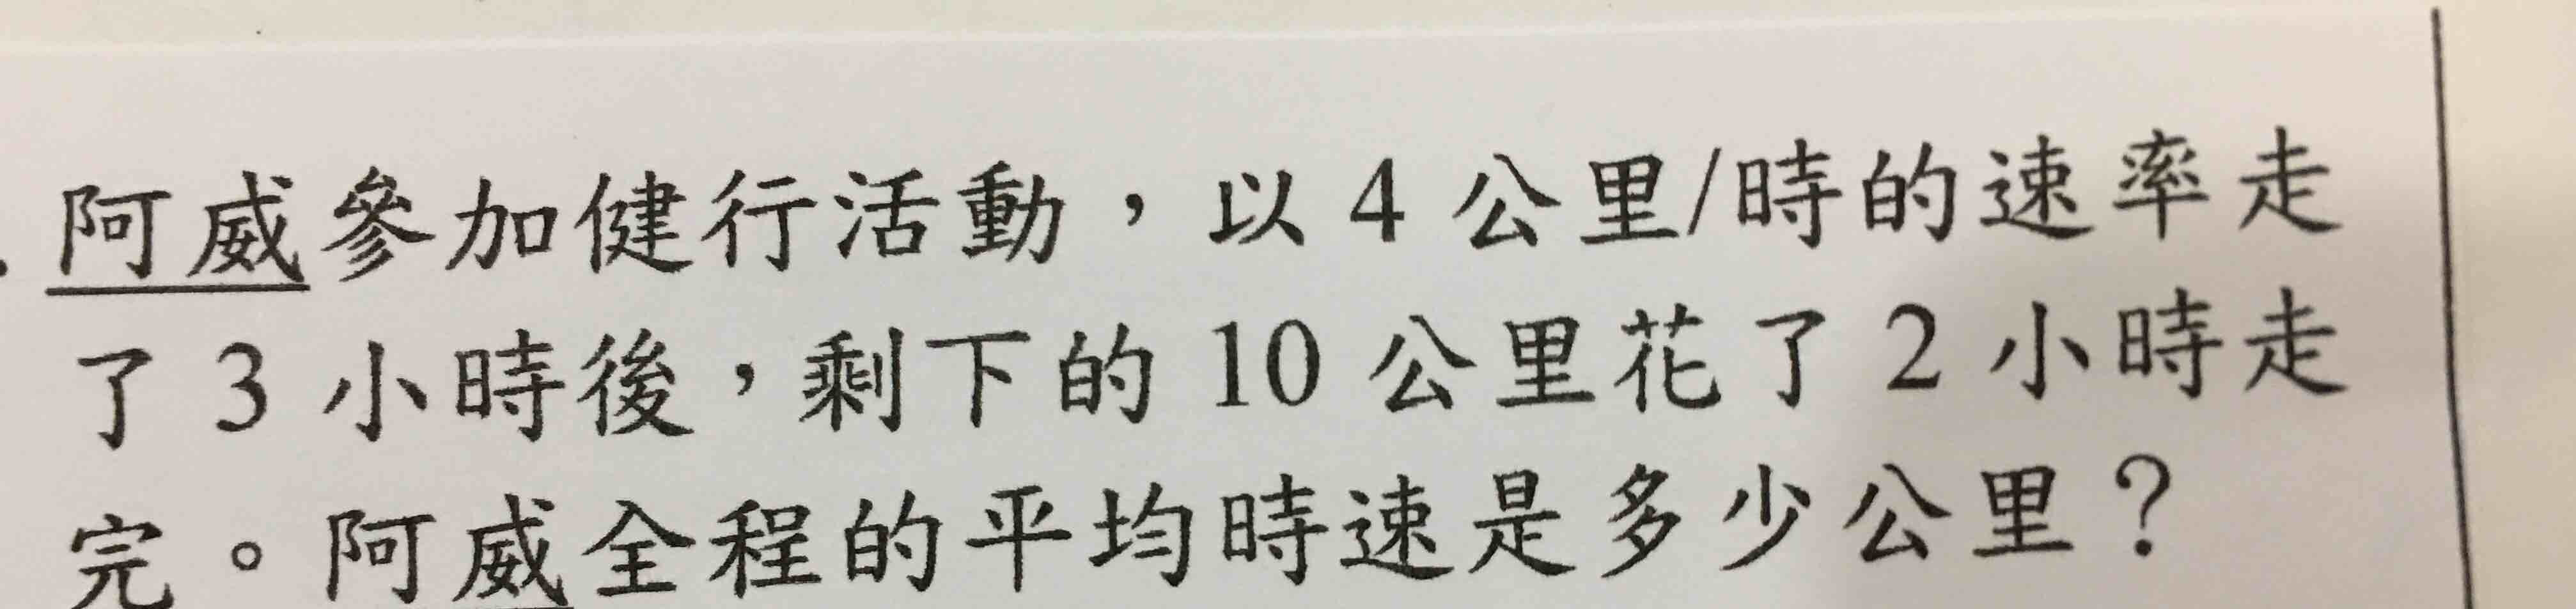 阿威參加健行活動，以 4 公里/時的速率走
了 3 小時後，剩下的 10 公里花了 2 小時走
完。阿威全程的平均時速是多少公里？